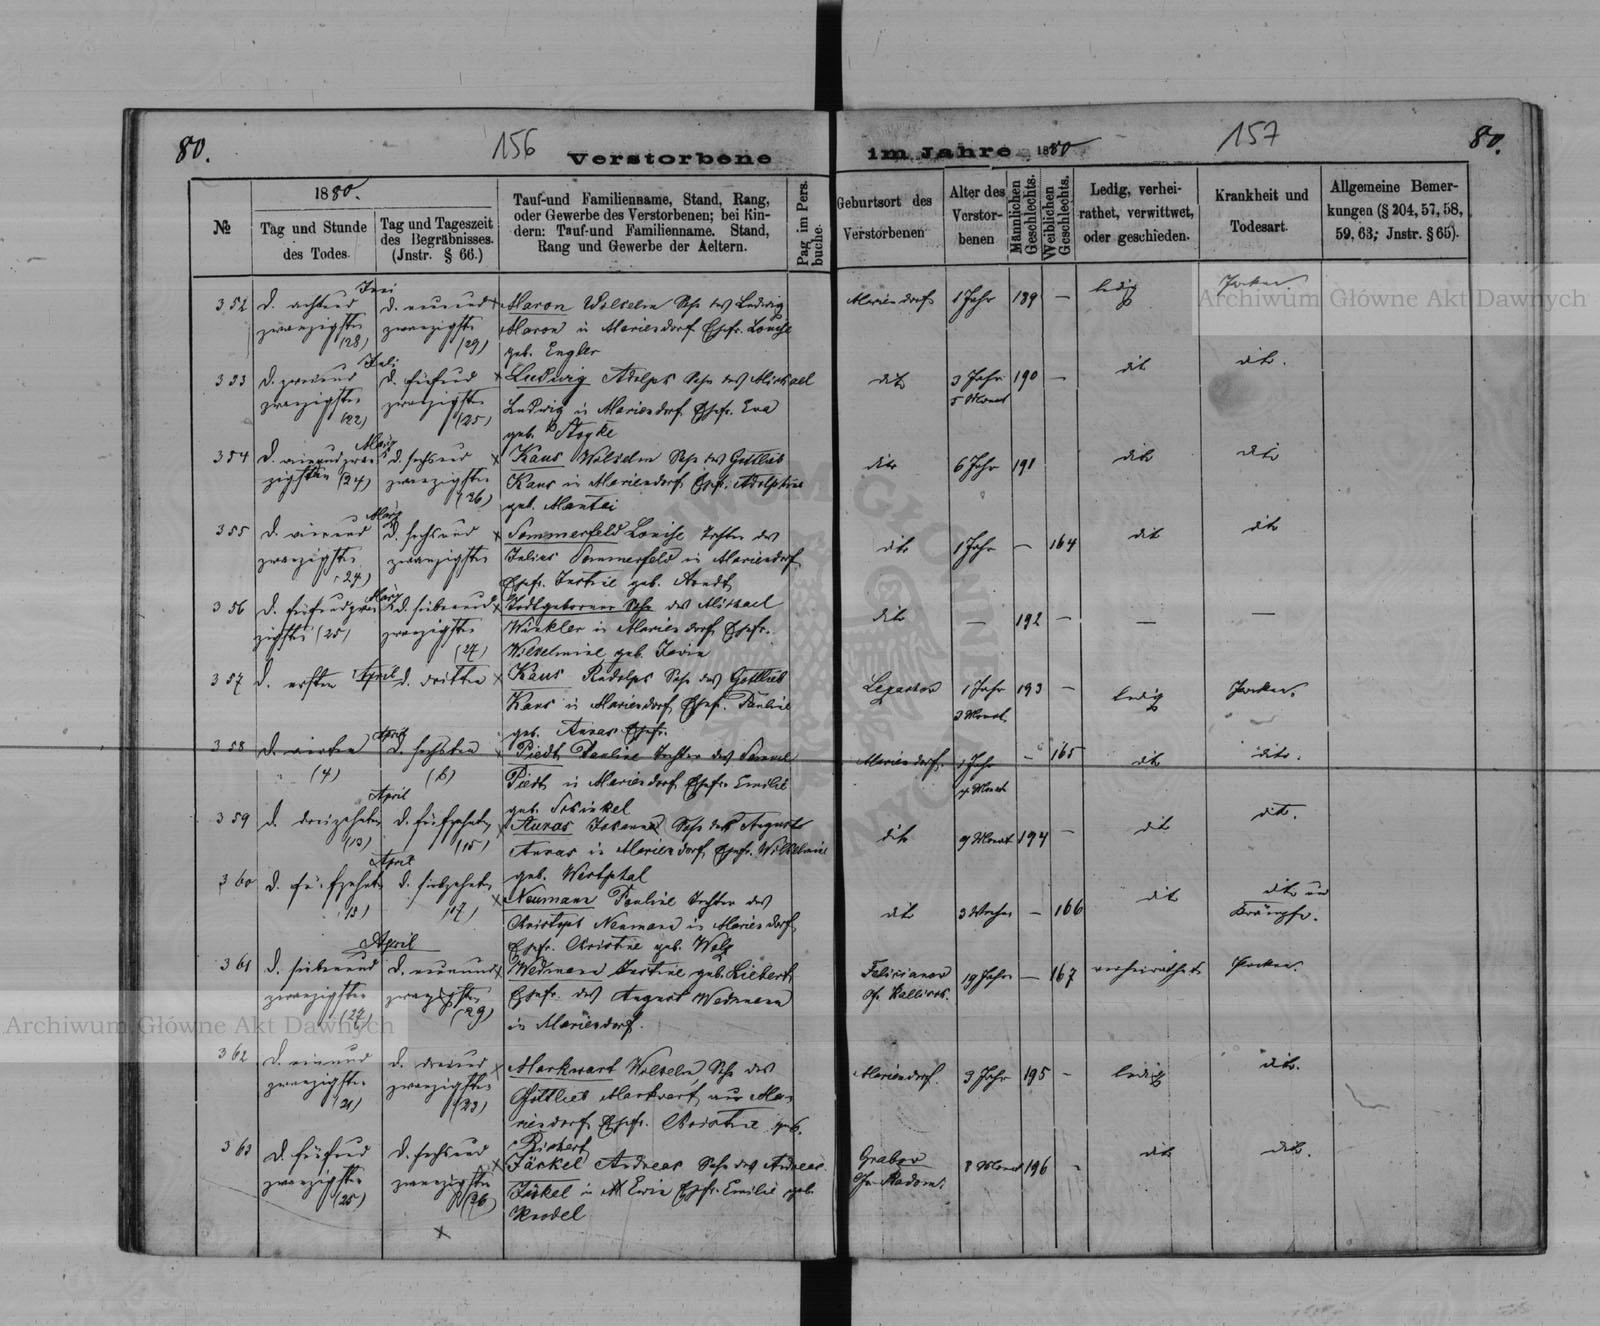 80.
156
157
80.
Verstorbene
im Jahre 1880
№
1880.
Tag und Stunde
des Todes.
Tag und Tageszeit
des Begräbnisses.
(Jnstr. § 66.)
Tauf-und Familienname, Stand, Rang,
oder Gewerbe des Verstorbenen; bei Kin-
dern: Tauf-und Familienname. Stand,
Rang und Gewerbe der Aeltern.
Pag im Pers.
buche.
Geburtsort des
Verstorbenen
Alter des
Verstor-
benen
Männlichen
Geschlechts.
Weiblichen
Geschlechts.
Ledig, verhei-
rathet, verwittwet,
oder geschieden.
Krankheit und
Todesart.
Allgemeine Bemer-
kungen (§ 204, 57, 58,
59, 63; Jnstr. § 65).
352 d. achtund d. neunund Maron Wilhelm Sohn des Ludwig Mariendorf 1 Jahr 189 — ledig Pocken.
zwanzigsten zwanzigsten Maron in Mariendorf Ehefr. Louise
(28) (29) geb. Engler
353 Juli
d. zweiund d. fünfund Ludwig Adolph Sohn des Michael dito 3 Jahr 190 — dito dito.
zwanzigsten zwanzigsten Ludwig in Mariendorf Ehefr. Eva 5 Monat
(22) (25) geb.
354 März
d. vierundzwan d. sechsund Kaus Wilhelm Sohn des Gottlieb dito 6 Jahr 191 dito dito
zigsten (24) zwanzigsten Kaus in Mariendorf Ehefr. Adolphine
(26) geb. Mantei
355 März
d. vierund d. sechsund Sommerfeld Louise Tochter des dito 1 Jahr — 164 dito dito
zwanzigsten zwanzigsten Julius Sommerfeld in Mariendorf
(24) Ehefr. Justine geb. Arndt
356 März
d. fünfundzwan d. siebenund Todtgeborner Sohn des Michael dito — 192 — — —
zigsten (25) zwanzigsten Winkler in Mariendorf Ehefr.
(27) Wilhelmine geb.
357 d. ersten April d. dritten Kaus Rudolph Sohn des Gottlieb 1 Jahr 193 — ledig Pocken.
Kaus in Mariendorf Ehefr. Pauline Monat
geb. Auras Ehefr.
358 April
d. vierten d. sechsten Piedt Pauline Tochter des Samuel Mariendorf. 1 Jahr — 165 dito dito.
(4) (6) Piedt in Mariendorf Ehefr. Emilie Monat
geb. Schinkel
359 April
d. dreizehnten d. fünfzehnten Auras Johann Sohn des August dito 9 Monat 194 — dito dito.
(13) (15) Auras in Mariendorf Ehefr. Wilhelmine
geb. Westphal
360 April
d. fünfzehnten d. siebzehnten Neumann Pauline Tochter des dito 3 Wochen — 166 dito dito und
(15) (17) Christoph Neumann in Mariendorf Krämpfe.
Ehefr. Christine geb.
361 April
d. siebenund d. neunund Wedmann Justine geb. Liebert Felicianow 19 Jahr — 167 verheirathet Pocken.
zwanzigsten zwanzigsten Ehefr. des August Wedmann
(27) (29) in Mariendorf.
362 d. einund d. dreiund Markwart Wilhelm, Sohn des Mariendorf. 3 Jahr 195 — ledig dito.
zwanzigsten zwanzigsten Gottlieb Markwart aus Ma-
(21) (23) riendorf Ehefr. Christine geb.
Richert
363 d. fünfund d. sechsund Jäckel Andreas Sohn des Andreas Grabow 8 Monat 196 - dito dito.
zwanzigsten zwanzigsten Jäckel in Ehefr. Emilie geb. Radom.
(25) (26)
Archiwum Główne Akt Dawnych
Archiwum Główne Akt Dawnych